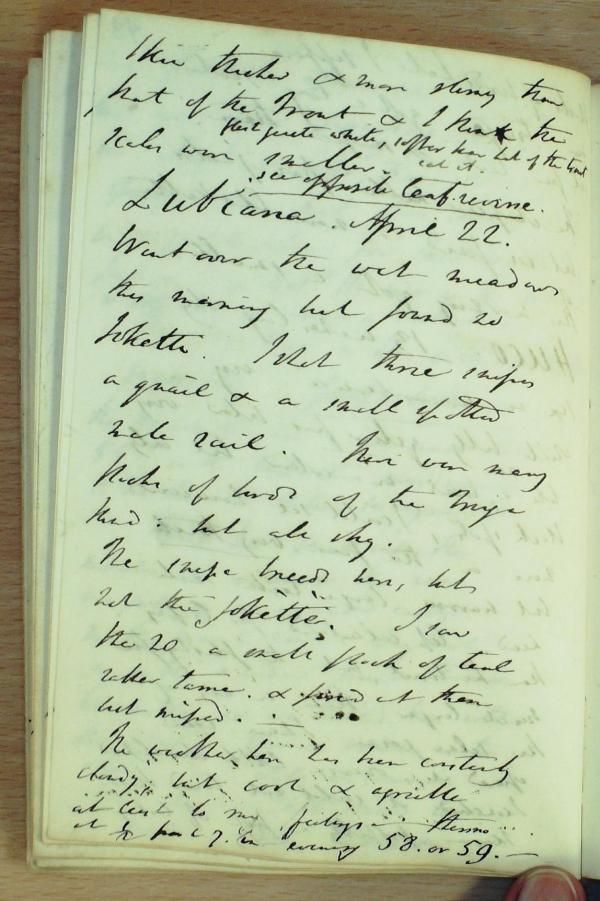 thicker & more slimy than
that of the Trout & I think the
flesh quite white, softer than that of the trout
scales were smaller. cut it.
see opposite leaf reverse.
Lubiana. April 22.
Went over the wet meadows
this morning but found no
Jokette. I shot three snipes
a quail & a small spotted
male rail. There were many
flocks of birds of the Tringa
kind: but all shy.
The snipe breeds here, but
not the Jokette. I saw
the 20 a small flock of teal
rather tame. & fired at them
but missed.
The weather here has been constantly
cloudy, but cool & agreeable
at least to my feelings. Thermo
at past 7. in evening 58. or 59.